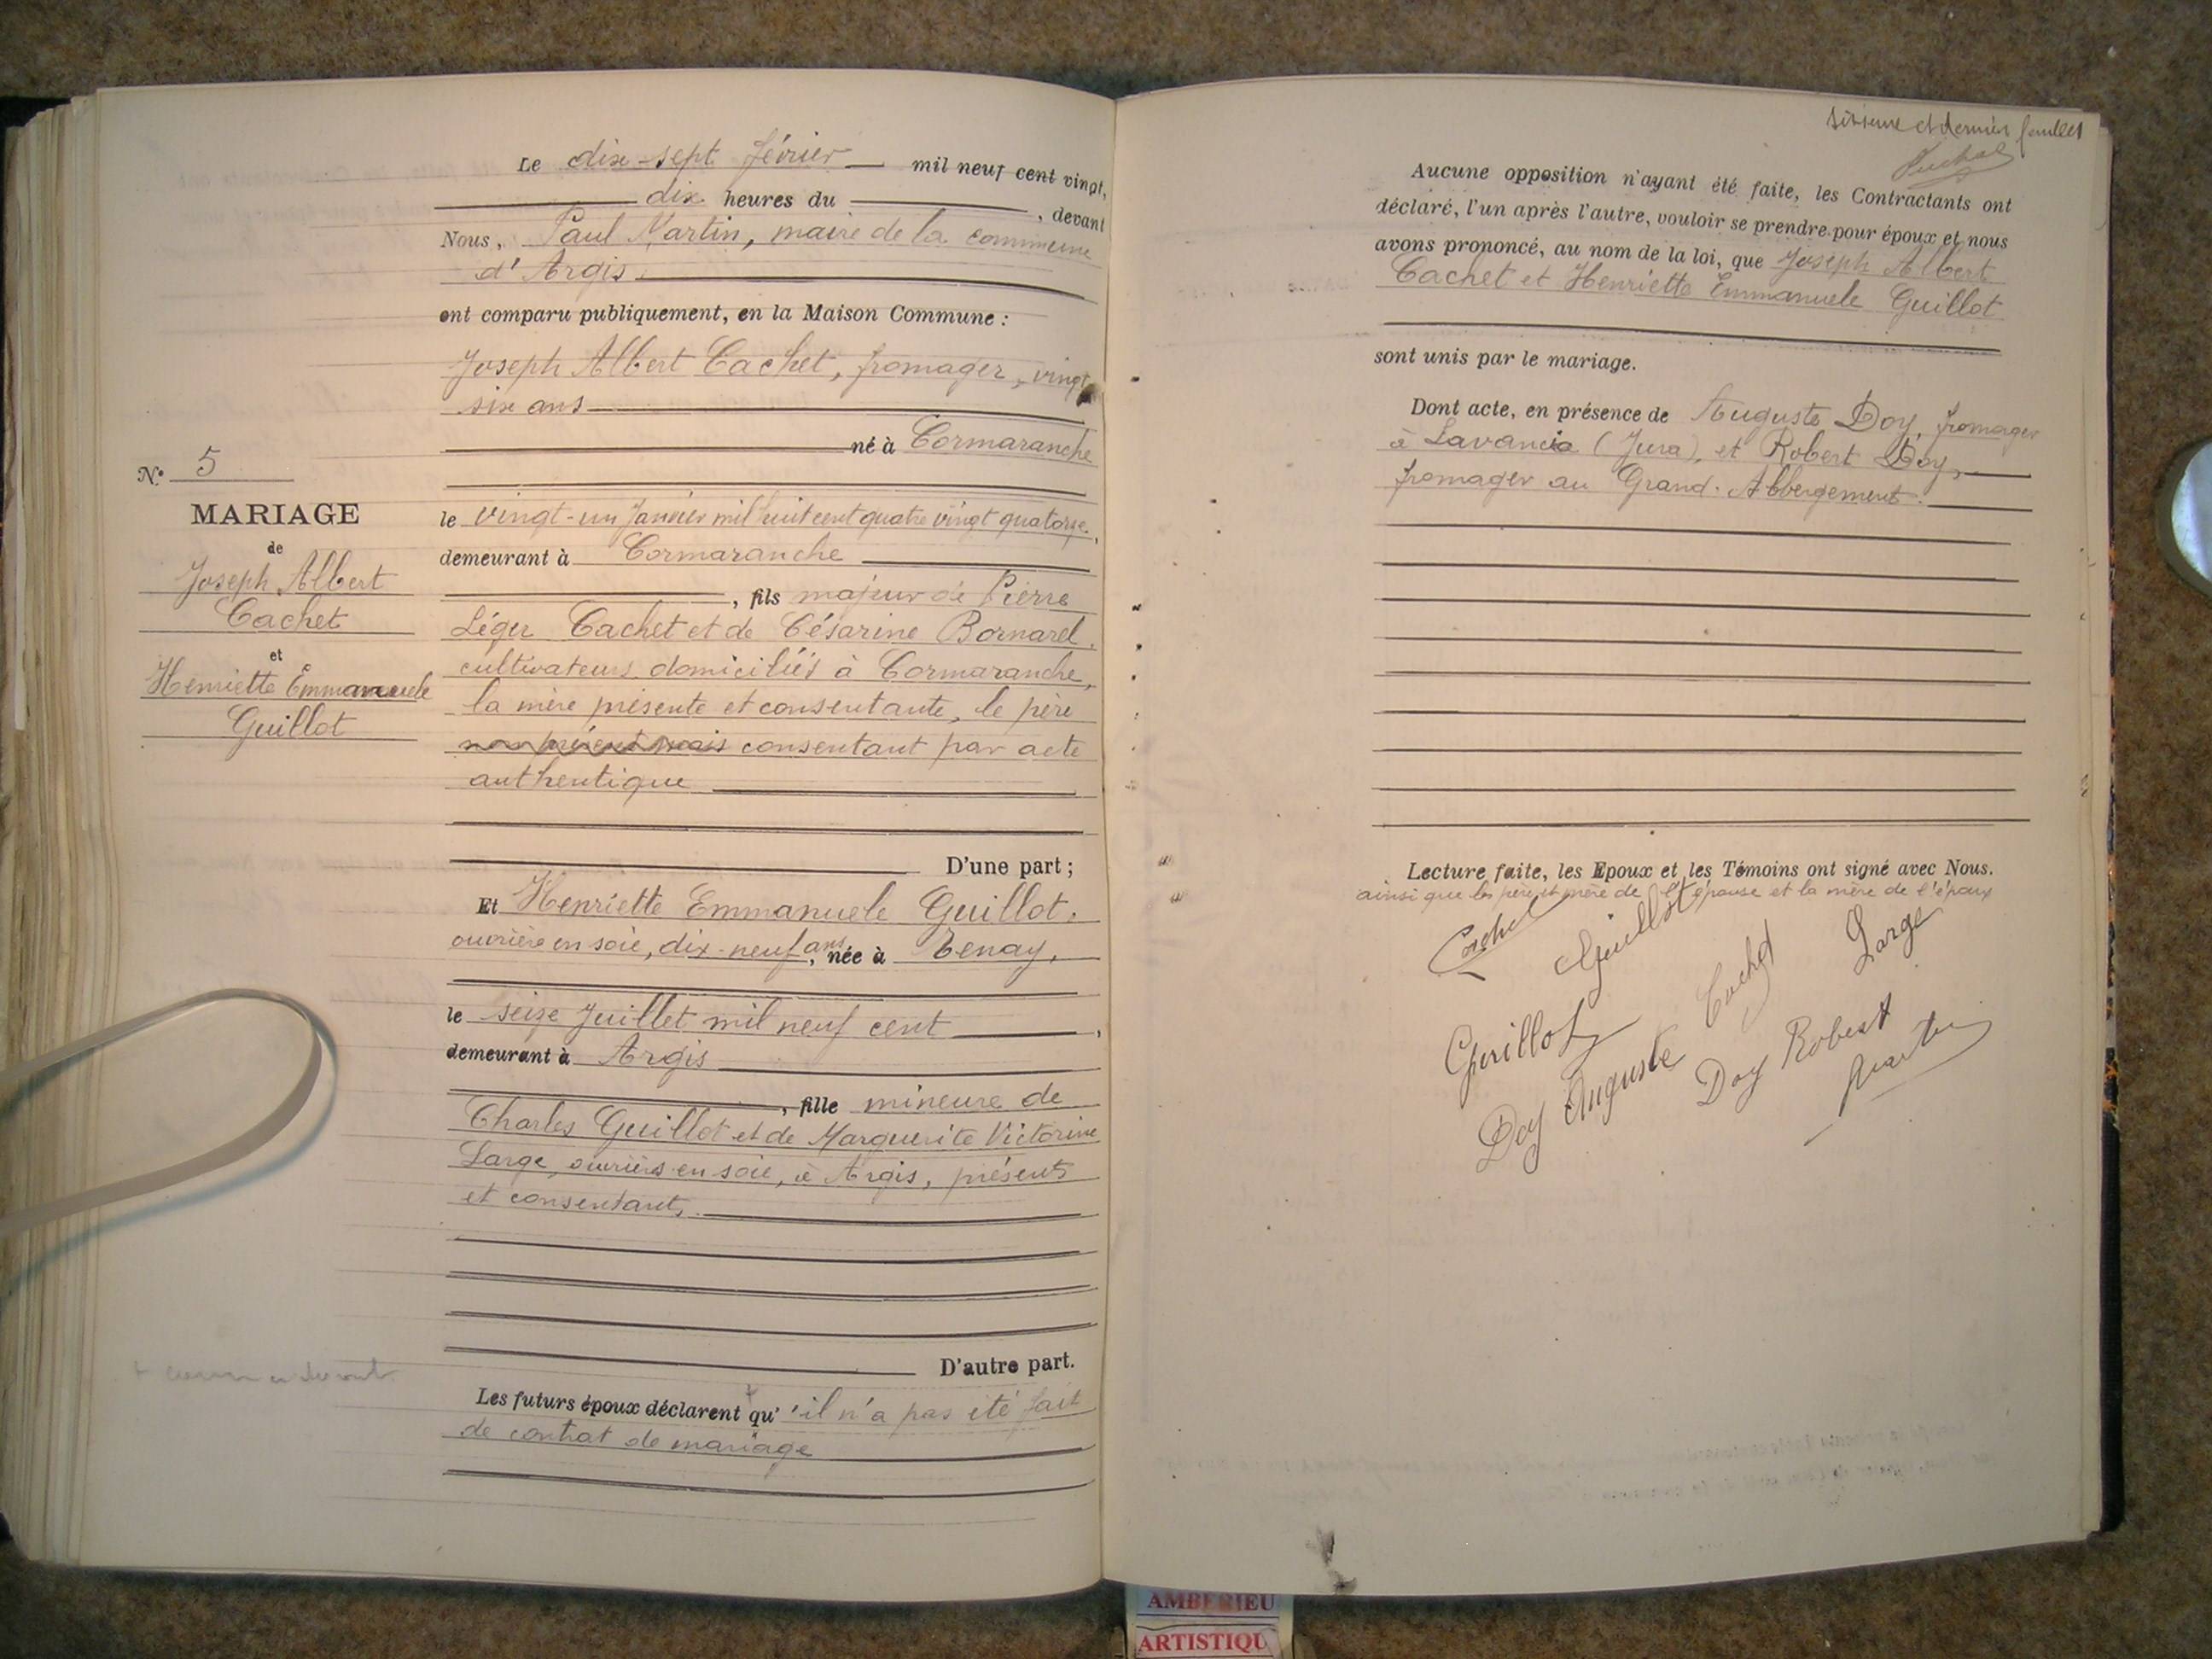 Le dix-sept février mil neuf cent vingt,
dix heures du , devant
Nous, Paul Martin, maire de la commune
d'Argis.
ont comparu publiquement, en la Maison Commune :
Joseph Albert Cachet, fromager, vingt
six ans
né à Cormaranche
le vingt-un Janvier mil huit cent quatre vingt quatorze,
demeurant à Cormaranche
, fils majeur de Pierre
Léger Cachet et de Césarine Bornarel,
cultivateurs domiciliés à Cormaranche,
la mère présente et consentante, le père
non présent mais consentant par acte
authentique
D'une part ;
Et Henriette Emmanuele Guillot,
ouvrière en soie, dix-neuf ans, née à Tenay,
le seize Juillet mil neuf cent ,
demeurant à Argis
, fille mineure de
Charles Guillot et de Marguerite Victorine
Large, ouvriers en soie, à Argis, présents
et consentants.
D'autre part.
Les futurs époux déclarent qu' 'il n'a pas été fait
de contrat de mariage
N° 5
MARIAGE
de
Joseph Albert
Cachet
et
Henriette Emmanuele
Guillot
et dernier feuillet
Aucune opposition n'ayant été faite, les Contractants ont
déclaré, l'un après l'autre, vouloir se prendre pour époux et nous
avons prononcé, au nom de la loi, que Joseph Albert
Cachet et Henriette Emmanuele Guillot
sont unis par le mariage.
Dont acte, en présence de Auguste Doy, fromager
à Lavancia (Jura), et Robert Doy,
fromager au Grand-Abbergement.
Lecture faite, les Epoux et les Témoins ont signé avec Nous.
ainsi que les père et mère de l'épouse et la mère de l'époux
Cachet Guillot Cachet Large
Guillot
Doy Auguste Doy Robert Martin
AMBERIEU
ARTISTIQU